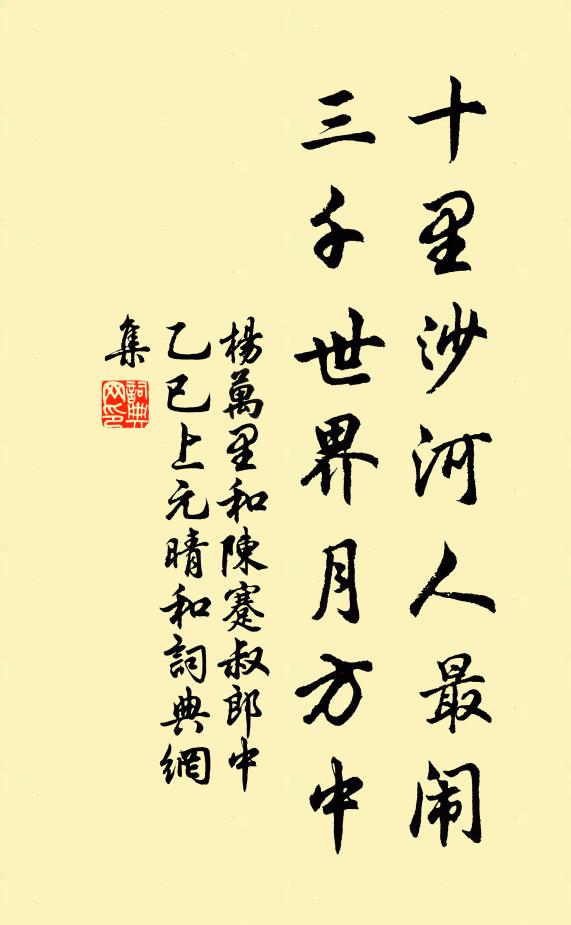 十里沙河人最闹
三千世界月方中
楊萬里和陳蹇叔郎中
乙巳上元晴和詞典網
集
詞典网印